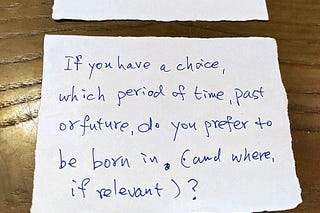 If you have a choice,
which period of time, past
or future, do you prefer to
be born in, (and where,
if relevant)?